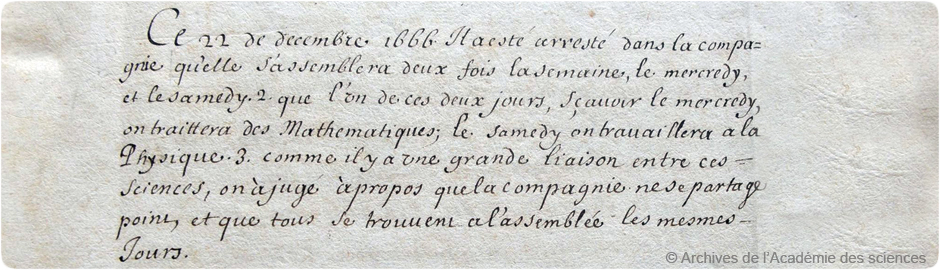 Ce 22 de decembre 1666 Il a esté arresté dans la compa=
gnie qu'elle s'assemblera deux fois la semaine, le mercredy,
et le samedy. 2. que l'un de ces deux jours, sçavoir le mercredy,
on traittera des Mathematiques; le samedy on travaillera a la
Physique. 3. comme il y a une grande liaison entre ces=
sciences, on à jugé à propos que la compagnie ne se partage
point, et que tous se trouvent a l'assemblée les mesmes=
Jours.
© Archives de l'Académie des sciences